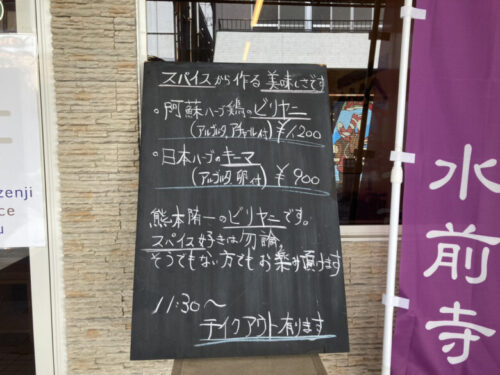 スパイスから作る美味しさです
・阿蘇ハーブ鶏のビリヤニ
(アルゴルタ、アチャール付) ¥1,200
・日本ハーブのキーマ
(アルゴルタ、卵付) ¥900
熊本随一のビリヤニです。
スパイス好きは勿論、
そうでもない方でもお楽み頂けます
11:30〜
テイクアウト有ります
水前寺
zenji
ce
u